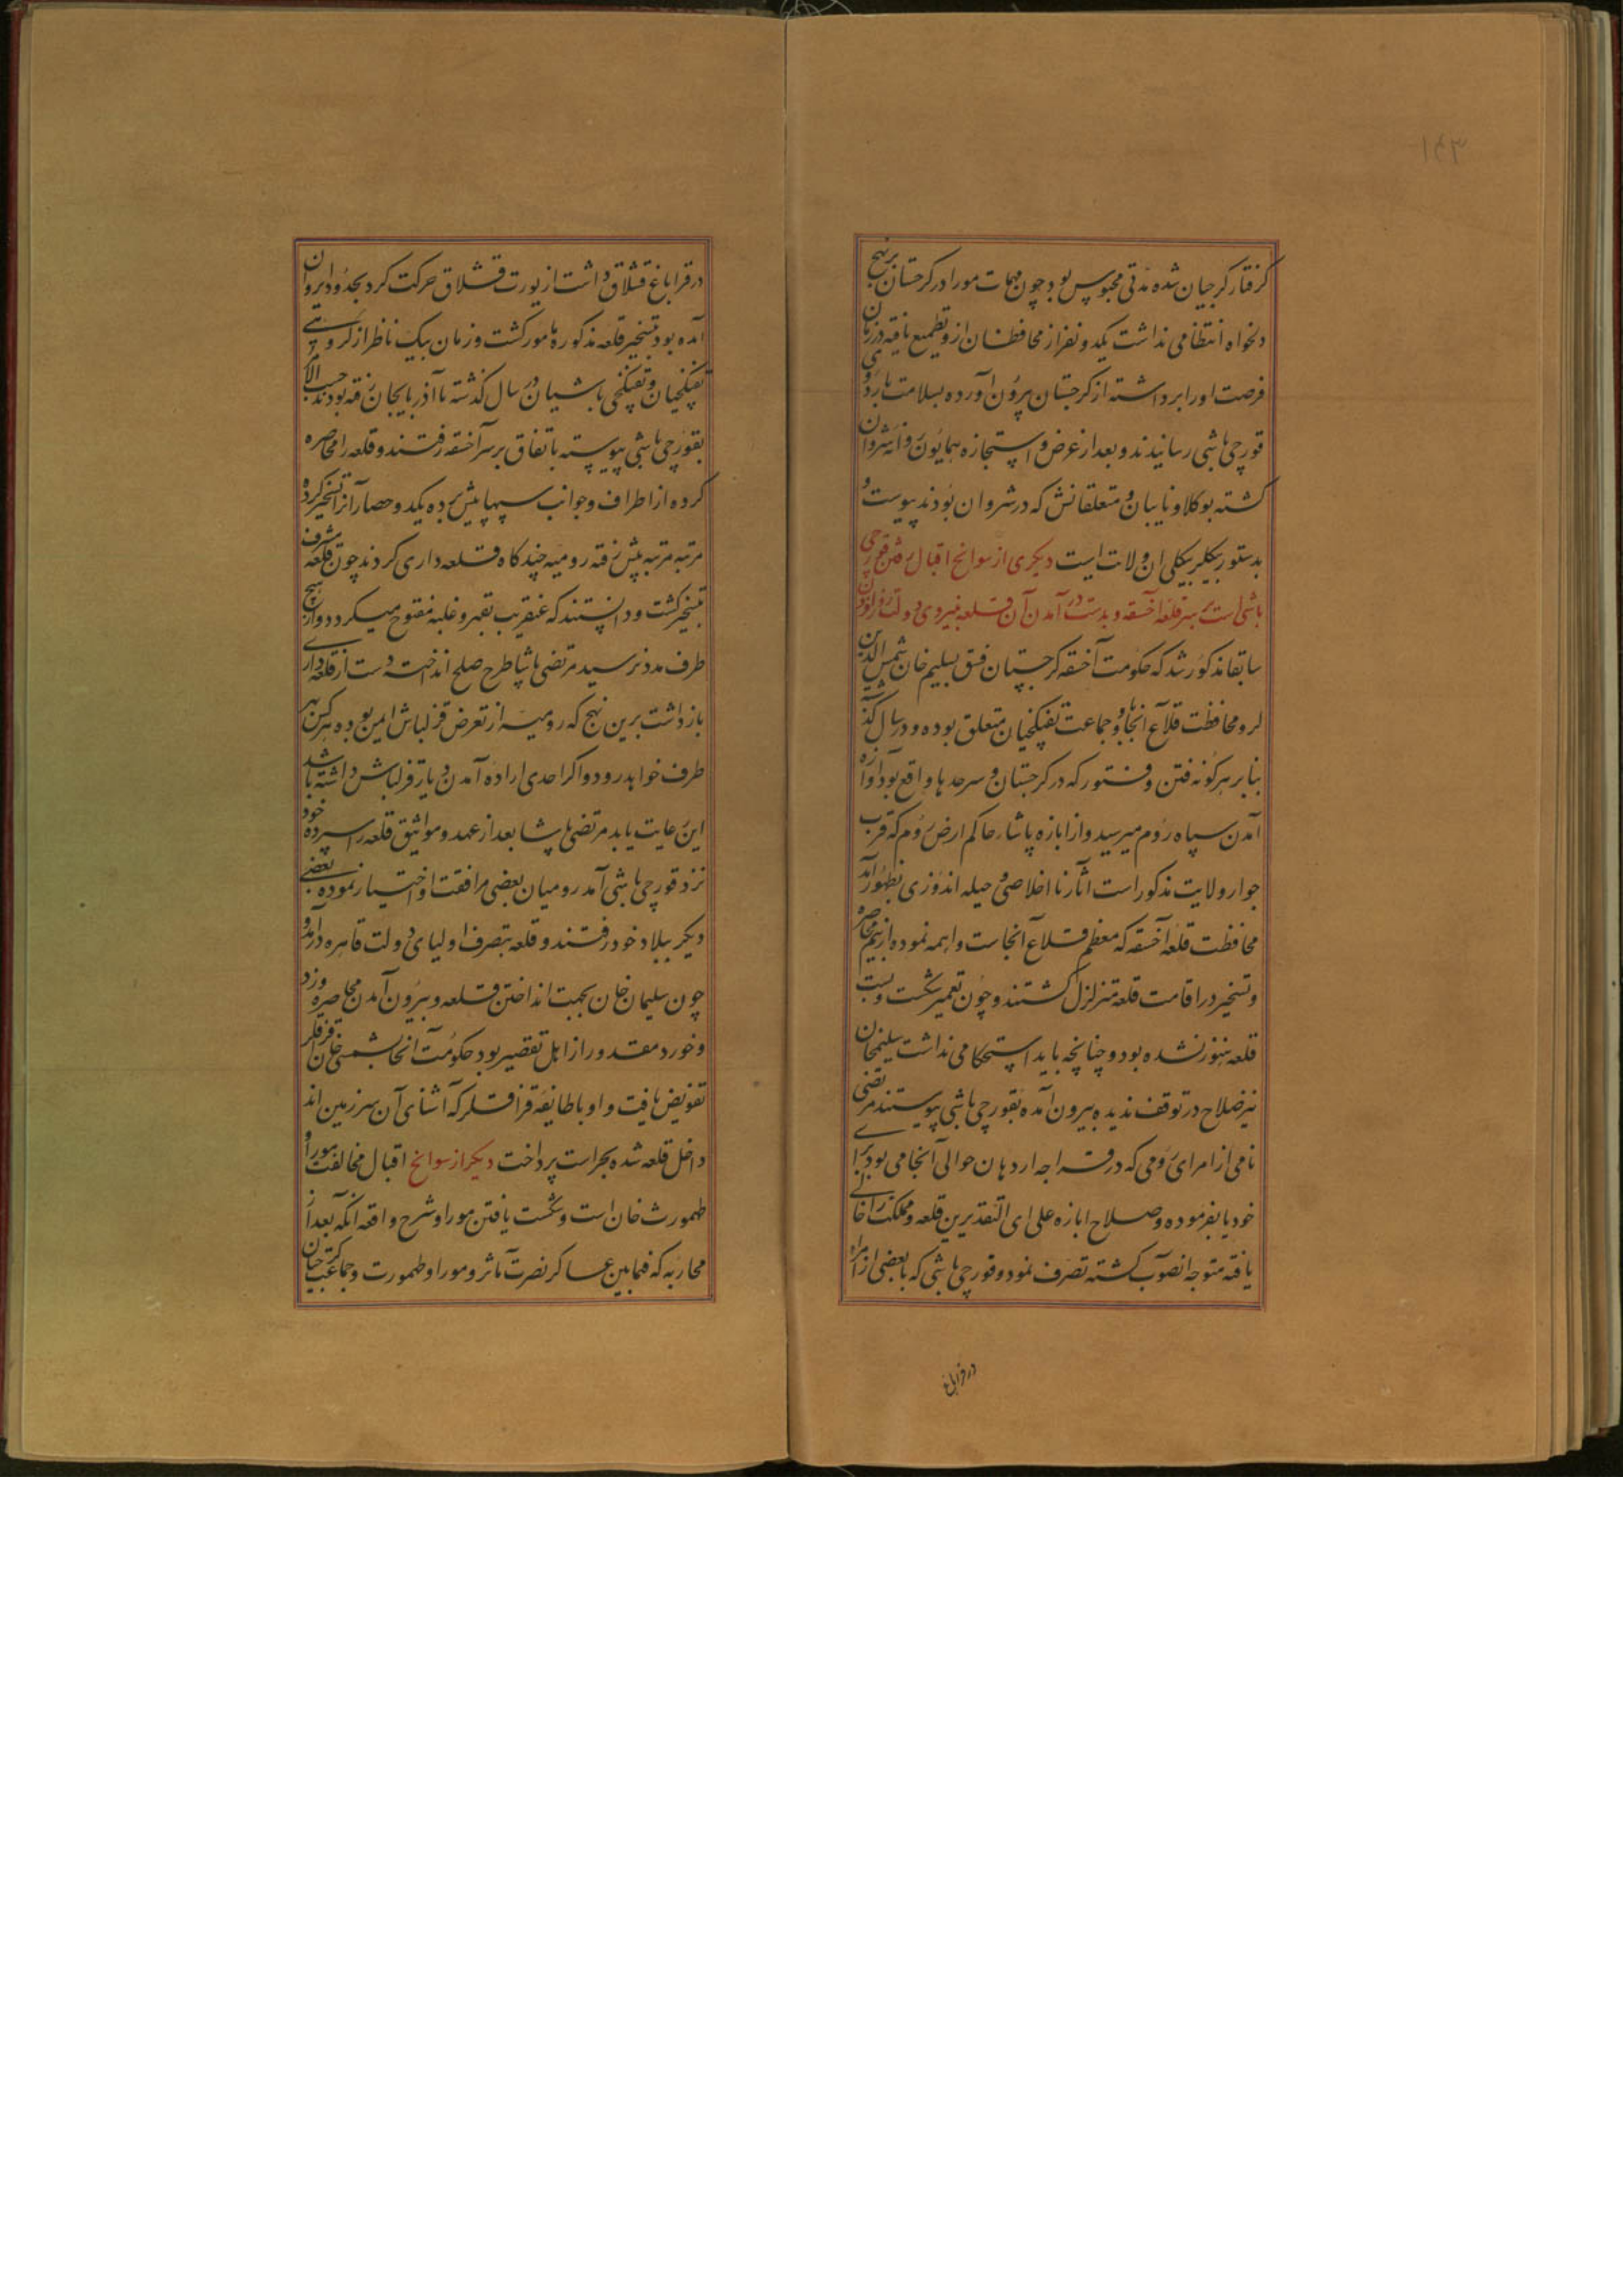 ۱۴۳
کرفتار کرجیان شده مدتی محبوس بود چون مهمات مورا در کرجستان بر نهج
دلخواه انتظامی نداشت یکدو نفر از محافظان ازو تطمیع یافته در زمان
فرصت اورا برداشته از کرجستان بیرون آورده بسلامت باردوی
قورچی باشی رسانیدند و بعد از عرض و استجازه همایون روانه شروان
کشته بوکلا و نایبان و متعلقانش که در شروان بودند پیوست و
بدستور بیکلربیکی ان ولایت است دیکری از سوانح اقبال رفتن قورچی
باشی است بر سر قلعه آخسقه و بدست در آمدن آن قلعه بنیروی دولت روزافزون
سابقا مذکور شد که حکومت آخسقه کرجستان فسق بسلیم خان شمس الدین
لو و محافظت قلاع آنجا و جماعت تفنکچیان متعلق بوده و در سال کذشته
بنا بر هر کونه فتن و فتور که در کرجستان و سرحدها واقع بود آوازه
آمدن سپاه روم میرسید و از ابازه پاشا، حاکم ارض روم که قرب
جوار ولایت مذکور است آثار نا اخلاصی و حیله اندوزی بظهور آمد
محافظت قلعه آخسقه که معظم قلاع آنجاست واهمه نموده از بیم محاصره
و تسخیر در اقامت قلعه متزلزل کشتند و چون تعمیر شکست و بست
قلعه هنوز نشده بود و چنانچه باید استحکامی نداشت سلیمخان
نیز صلاح در توقف ندیده بیرون آمده بقورچی باشی پیوستند مرتضی
نامی از امرای رومی که در قراجه اردهان حوالی آنجا می بود برای
خود یا بفرموده و صلاح ابازه علی ای التقدیرین قلعه و مملکت را خالی
یافته متوجه انصوب کشته تصرف نمود و قورچی باشی که با بعضی از امراء
در قراباغ
در قراباغ قشلاق داشت از یورت قشلاق حرکت کرد بحدود ایروان
آمده بود بتسخیر قلعه مذکوره مامور کشت و زمان بیک ناظر از کروهی
تفنکچیان و تفنکچی باشیان در سال کذشته با آذربایجان رفته بودند حسب الامر
بقورچی باشی پیوسته باتفاق بر سر آخسقه رفتند و قلعه را محاصره
کرده از اطراف و جوانب سیبها پیش برده یکدو حصار آنرا تسخیر کرده
مرتبه مرتبه پیش رفته رومیه چند کاه قلعه داری کردند چون قلعه مشرف
بتسخیر کشت و دانستند که عنقریب بقهر و غلبه مفتوح میکردد و از هیچ
طرف مدد نرسید مرتضی پاشا طرح صلح انداخته دست از قلعه داری
بازداشت برین نهج که رومیه از تعرض قزلباش ایمن بوده هر کس بهر
طرف خواهد رود و اکر احدی اراده آمدن دیار قزلباش داشته باشد
این رعایت یابد مرتضی پاشا بعد از عهد و مواثیق قلعه را سپرده خود
نزد قورچی باشی آمد رومیان بعضی مرافقت او اختیار نموده بعضی
دیکر ببلاد خود رفتند و قلعه بتصرف اولیای دولت قاهره درآمد و
چون سلیمان خان بجهت انداختن قلعه و بیرون آمدن محاصره و زد
و خورد مقدور از اهل تقصیر بود حکومت آنجا بشمسی خان قزاقلر
تفویض یافت و او با طایفه قزاقلر که آشنای آن سرزمین اند
داخل قلعه شده بحراست پرداخت دیکر از سوانح اقبال مخالفت مورا و
طهمورث خان است و شکست یافتن مورا و شرح واقعه آنکه بعد از
محاربه که فیمابین عساکر نصرت مآثر و مورا و طهمورث و جماعت کرجیان